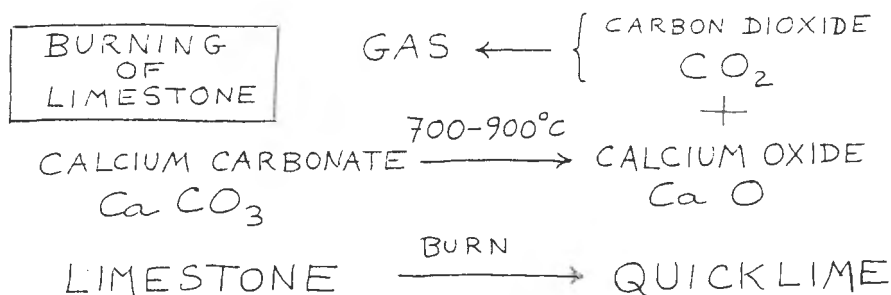 BURNING
OF
LIMESTONE
GAS ← { CARBON DIOXIDE
CO₂
+
CALCIUM CARBONATE 700-900°C → CALCIUM OXIDE
CaCO₃ CaO
LIMESTONE BURN → QUICKLIME